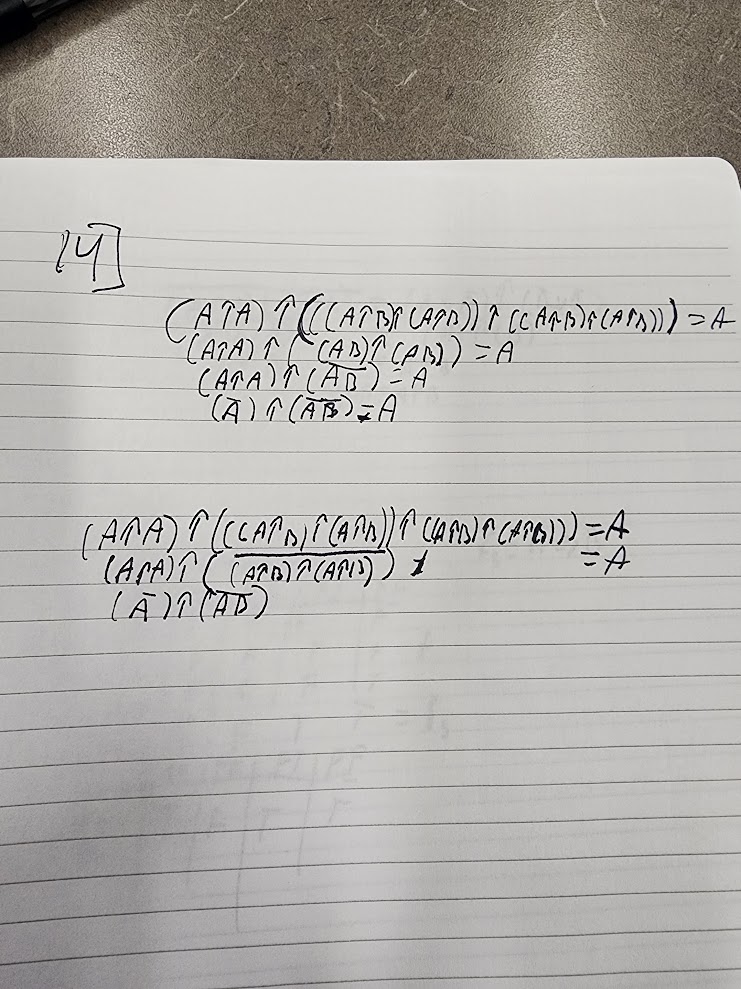 14]
(A↑A)↑(((A↑B)↑(A↑B))↑((A↑B)↑(A↑B)))=A
(A↑A)↑(‾(AB)↑(AB))=A
(A↑A)↑(A̅B̅)=A
(A̅)↑(A̅B̅)=A
(A↑A)↑(((A↑B)↑(A↑B))↑((A↑B)↑(A↑B)))=A
(A↑A)↑((A↑B)↑(A↑B)) =A
(A̅)↑(A̅B̅)